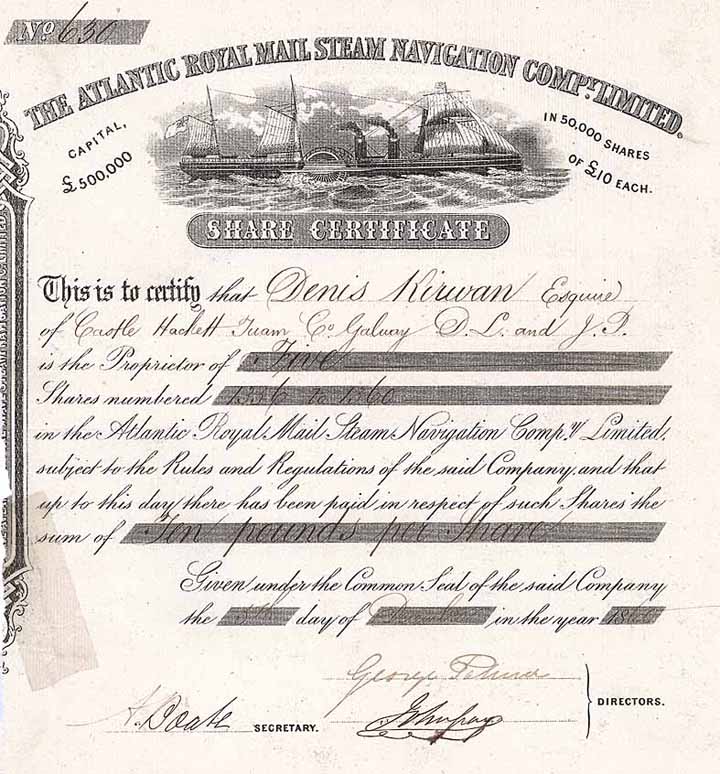 No 630
THE ATLANTIC ROYAL MAIL STEAM NAVIGATION COMPY. LIMITED.
CAPITAL,
£500,000
IN 50,000 SHARES
OF £10 EACH.
SHARE CERTIFICATE
This is to certify that Denis Kirwan Esquire
of Castle Hackett Tuam Co. Galway D.L. and J.P.
is the Proprietor of Five
Shares numbered 1356 to 1360
in the Atlantic Royal Mail Steam Navigation Compy Limited,
subject to the Rules and Regulations of the said Company, and that
up to this day there has been paid in respect of such Shares the
sum of Ten pounds per Share
Given under the Common Seal of the said Company
the day of December in the year
George
SECRETARY.
DIRECTORS.